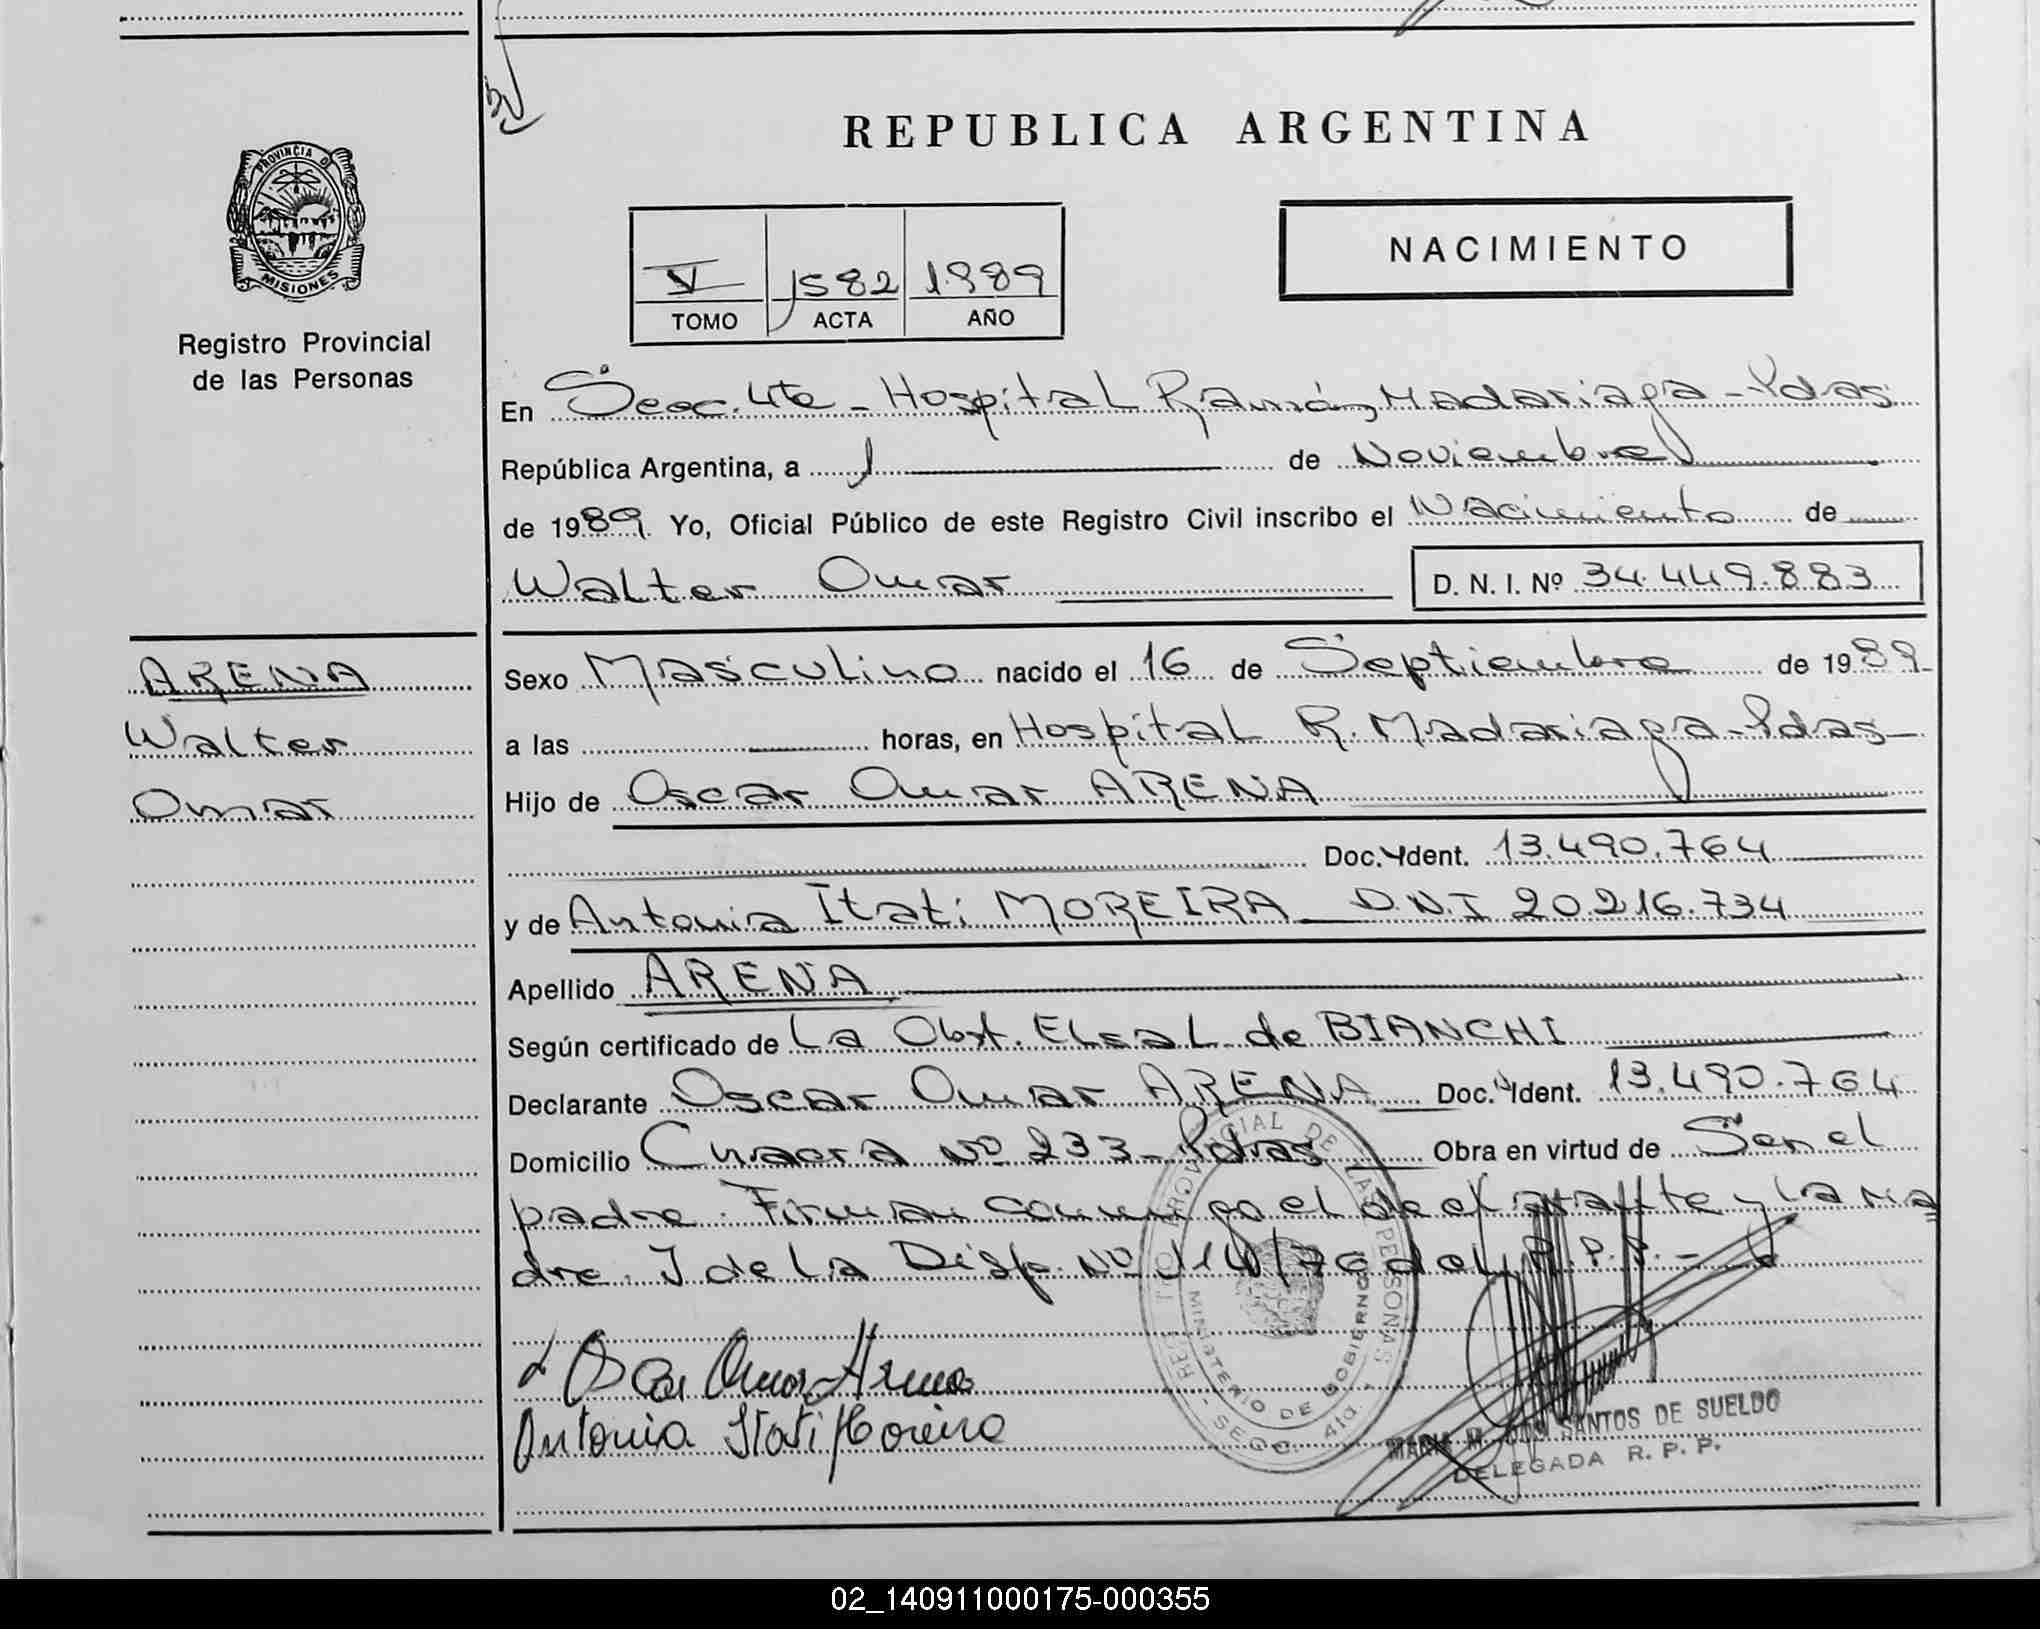 REPUBLICA ARGENTINA
PROVINCIA D
MISIONES
Registro Provincial
de las Personas
V 1582 1989
TOMO ACTA AÑO
NACIMIENTO
En Secc. 4ta - Hospital Ramón Madariaga - Pdas.
República Argentina, a 1 de Noviembre
de 1989. Yo, Oficial Público de este Registro Civil inscribo el Nacimiento de
Walter Omar D. N. I. Nº 34.449.883
ARENA
Walter
Omar
Sexo Masculino nacido el 16 de Septiembre de 1989
a las horas, en Hospital R. Madariaga - Pdas -
Hijo de Oscar Omar ARENA
Doc. Ident. 13.490.764
y de Antonia Itatí MOREIRA D.N.I 20.216.734
Apellido ARENA
Según certificado de La Obst. Elsa L. de BIANCHI
Declarante Oscar Omar ARENA Doc. Ident. 13.490.764
Domicilio Chacra Nº 233 - Pdas Obra en virtud de Ser el
padre. Firman conmigo el declarante y la ma
dre. I de la Disp. Nº 114/76 del R.P.P. -
Oscar Omar Arena
Antonia Itati Moreira
PROVINCIAL DE LAS PERSONAS
MINISTERIO DE GOBIERNO
SECC. 4ta.
MARIA M. DOS SANTOS DE SUELDO
DELEGADA R. P. P.
02_140911000175-000355